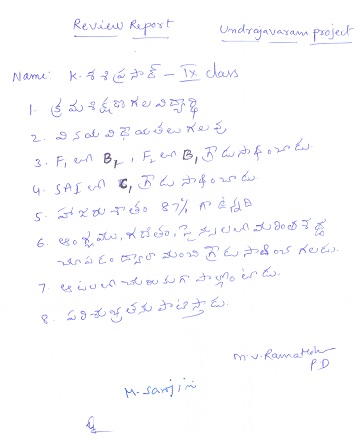 Review Report
Undrajavaram project
Name: K. శశి ప్రసాద్ - IX class
1. క్రమశిక్షణ గల విద్యార్థి
2. వినయ విధేయతలు గలవు
3. F1 లో B2, F2 లో B1 గ్రేడు సాధించాడు.
4. SA1 లో C1 గ్రేడు సాధించాడు.
5. హాజరు శాతం 87% గా ఉన్నది
6. ఆంగ్లము, గణితం, సైన్సులలో మరింత శ్రద్ధ
చూపడం ద్వారా మంచి గ్రేడు సాధించ గలడు.
7. ఆటలలో చురుకుగా పాల్గొంటాడు.
8. పరిశుభ్రతను పాటిస్తాడు.
P.D
M. Sarojini